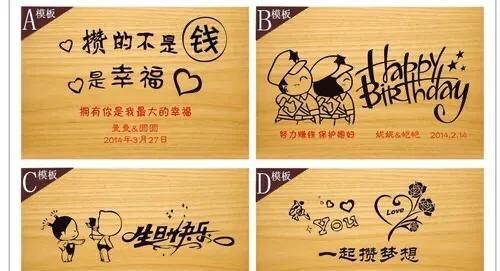 A模板
攒的不是钱
是幸福
拥有你是我最大的幸福
曼曼&圆圆
2014年3月27日
B模板
Happy
Birthday
努力赚钱 保护媳妇
妮妮&皑皑 2014.2.14
C模板
生日快乐
D模板
You
Love
一起攒梦想